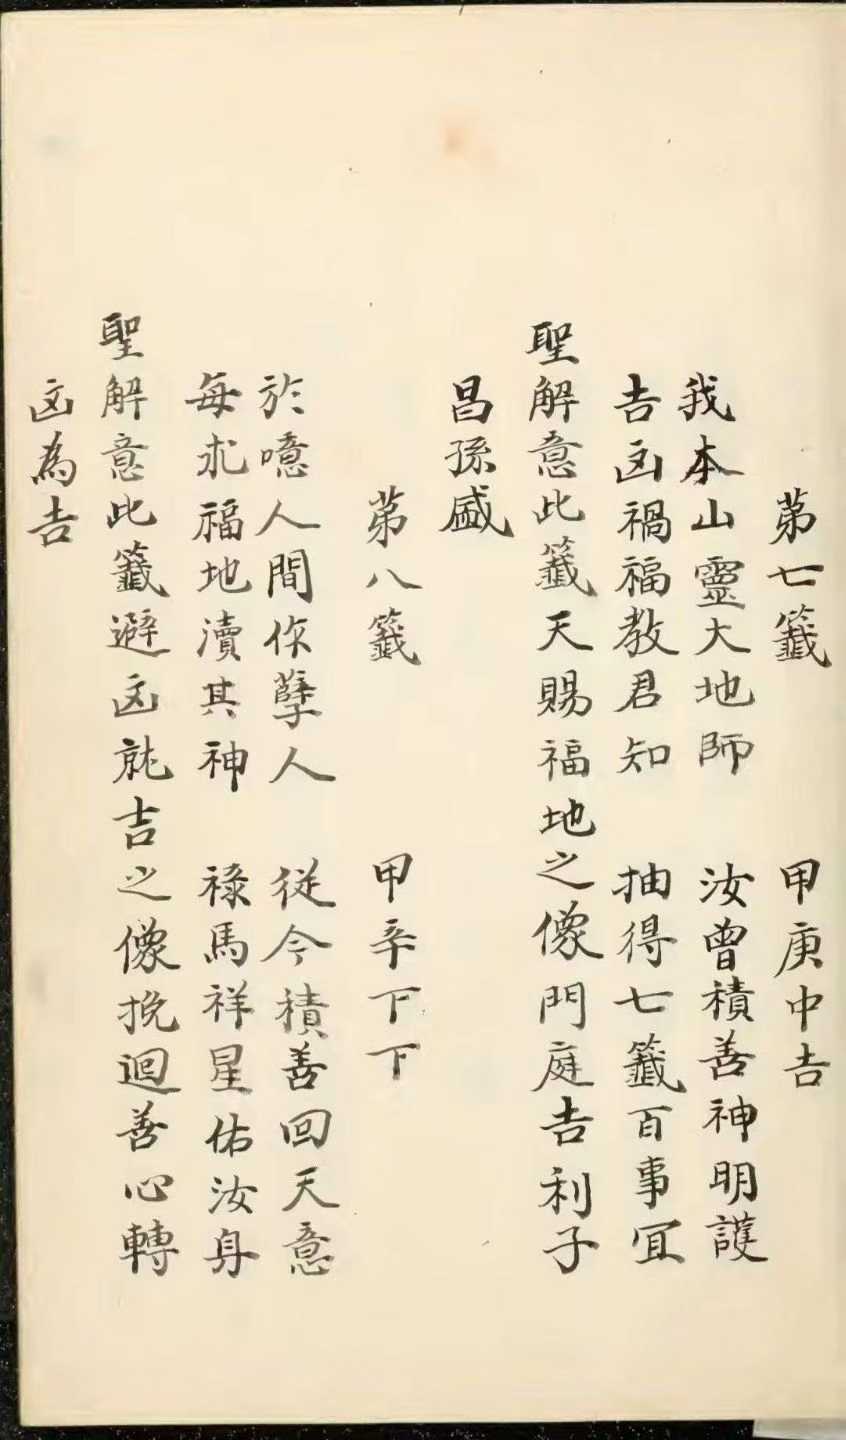 第七籤 甲庚中吉
我本山靈大地師 汝曾積善神明護
吉凶禍福教君知 抽得七籤百事宜
聖解意此籤天賜福地之像門庭吉利子
昌孫盛
第八籤 甲辛下下
於噫人間作孽人 從今積善回天意
每求福地瀆其神 祿馬祥星佑汝身
聖解意此籤避凶就吉之像挽迴善心轉
凶為吉